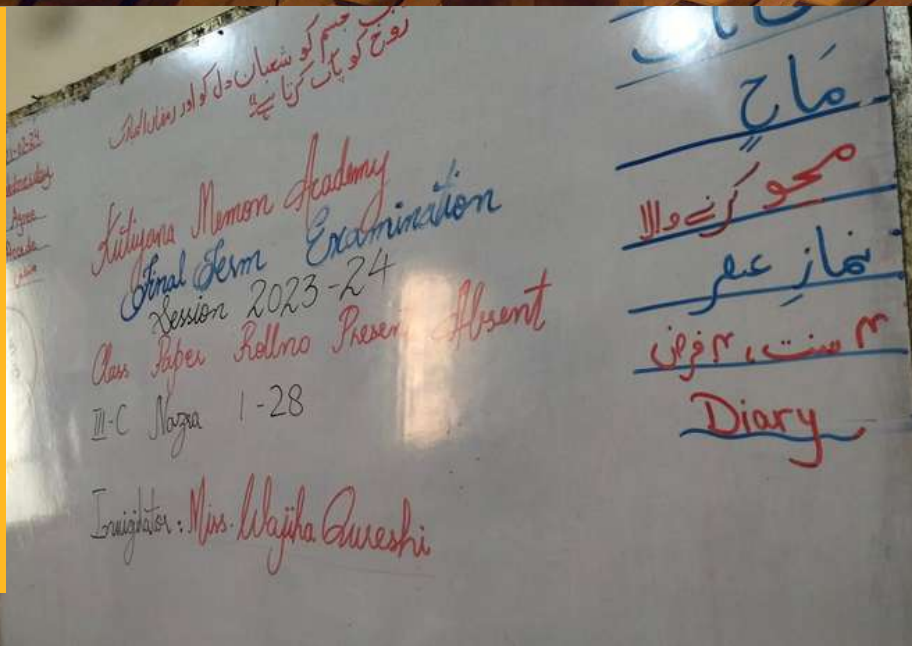 جسم کو شعبان دل کو اور رمضان المبارک
روح کو پاک کرتا ہے"
Wednesday
Agree
Kutiyana Memon Academy
Final Term Examination
Session 2023-24
Class Paper Rollno Present Absent
III-C Nazra 1-28
Invigilator: Miss. Wajiha Qureshi
مَاحٍ
محو کرنے والا
نمازِ عصر
۴ سنت، ۴ فرض
Diary